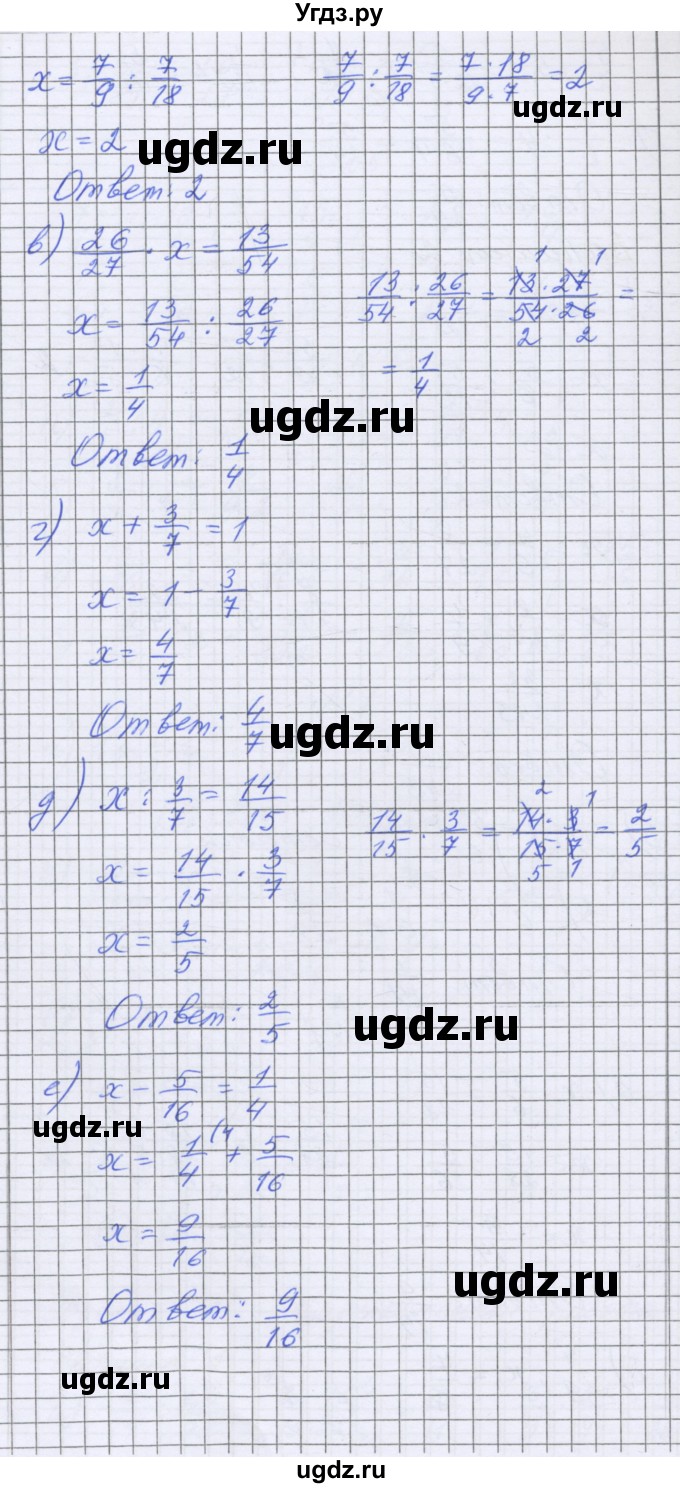 Угдз.ру
x = 7/9 : 7/18    7/9 : 7/18 = 7·18/9·7 = 2
ugdz.ru
x = 2
ugdz.ru
Ответ: 2
в) 26/27 · x = 13/54
x = 13/54 : 26/27    13/54 : 26/27 = 13·27/54·26 =
1 1
2 2
x = 1/4    = 1/4
ugdz.ru
Ответ: 1/4
г) x + 3/7 = 1
x = 1 - 3/7
x = 4/7
Ответ: 4/7
ugdz.ru
д) x : 3/7 = 14/15
x = 14/15 · 3/7    14/15 · 3/7 = 14·3/15·7 = 2/5
2 1
5 1
x = 2/5
Ответ: 2/5
ugdz.ru
е) x - 5/16 = 1/4
ugdz.ru
x = 1/4 (4 + 5/16
x = 9/16
ugdz.ru
Ответ: 9/16
ugdz.ru
ugdz.ru